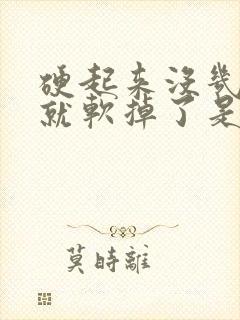 硬起来没几
就软掉了是
莫時離